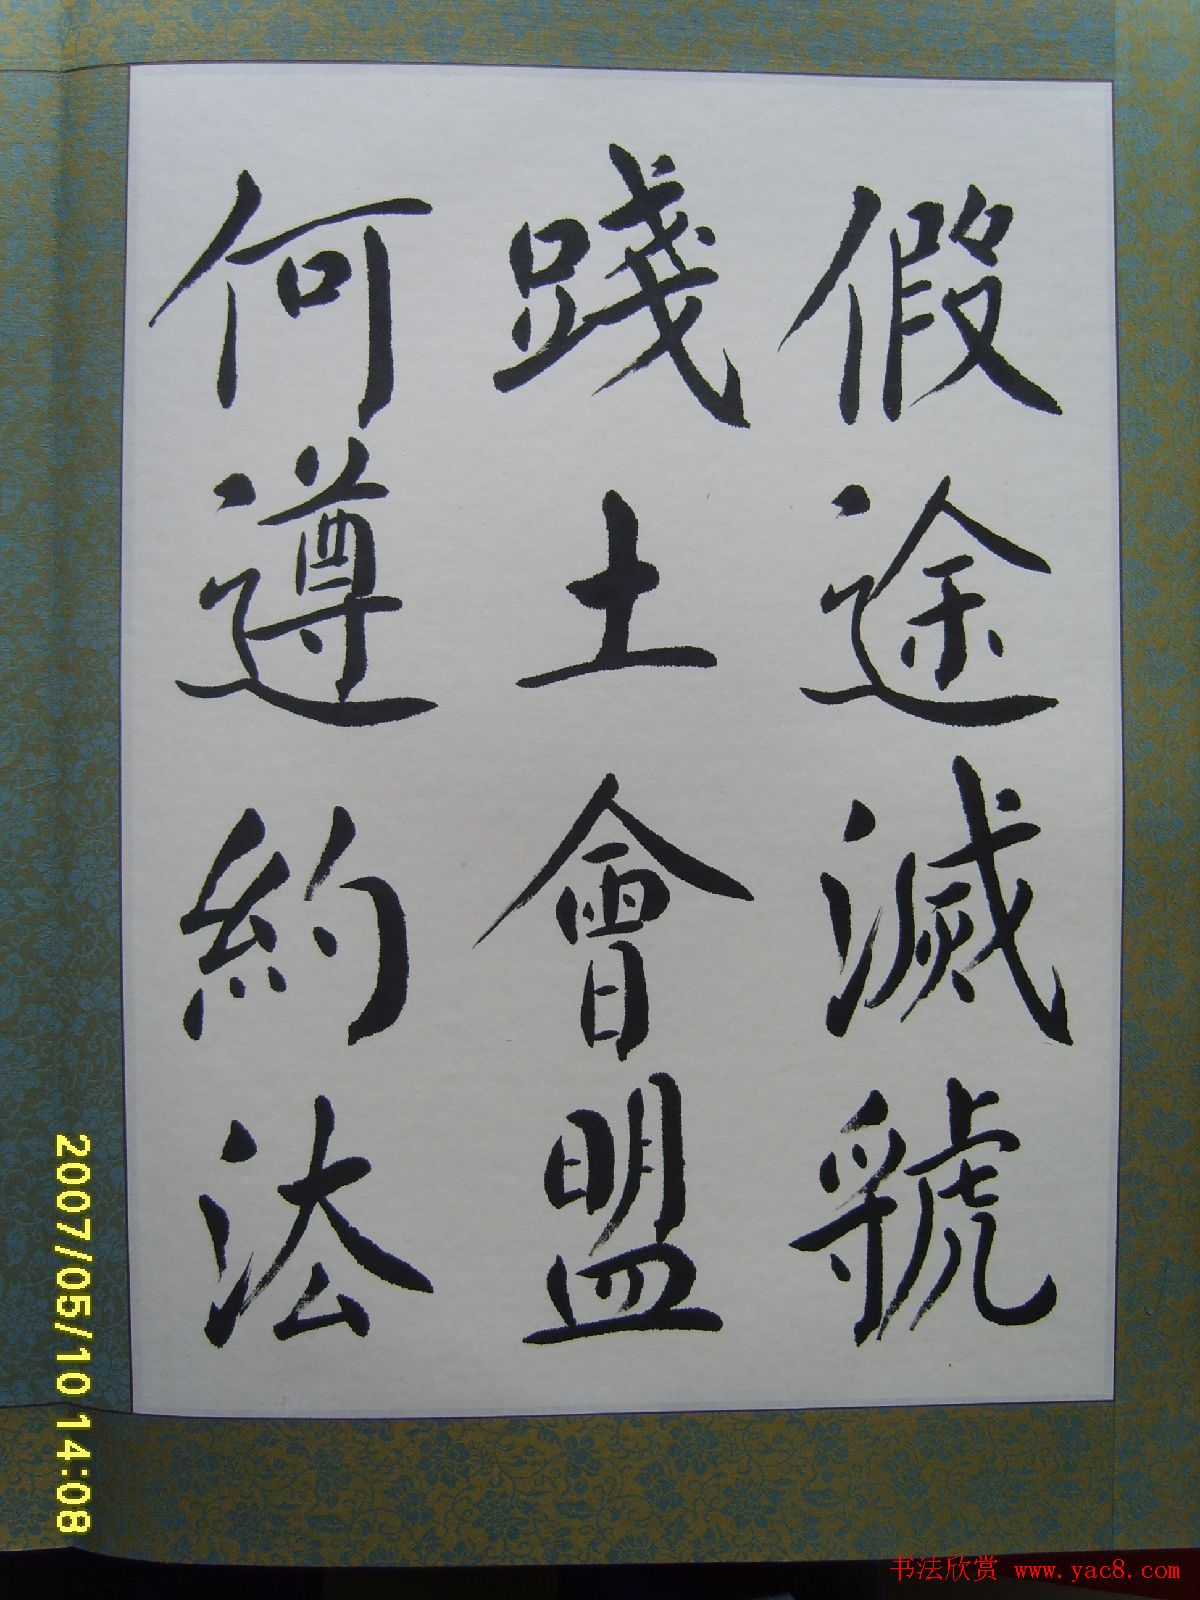 假途滅虢
踐土會盟
何遵約法
2007/05/10 14:08
书法欣赏 www.yac8.com